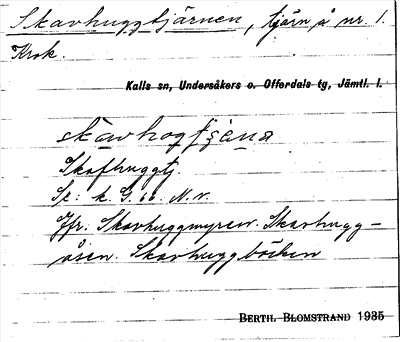 Skavhuggtjärnen, tjärn å nr. 1.
Krok.
Kalls sn, Undersåkers o. Offerdals tg, Jämtl. l.
skavhogtjena
Skafhuggtj.
Se: k. G. 66. N.v.
Jfr: Skavhuggmyren. Skavhugg-
åsen. Skavhuggbäcken
BERTIL BLOMSTRAND 1935